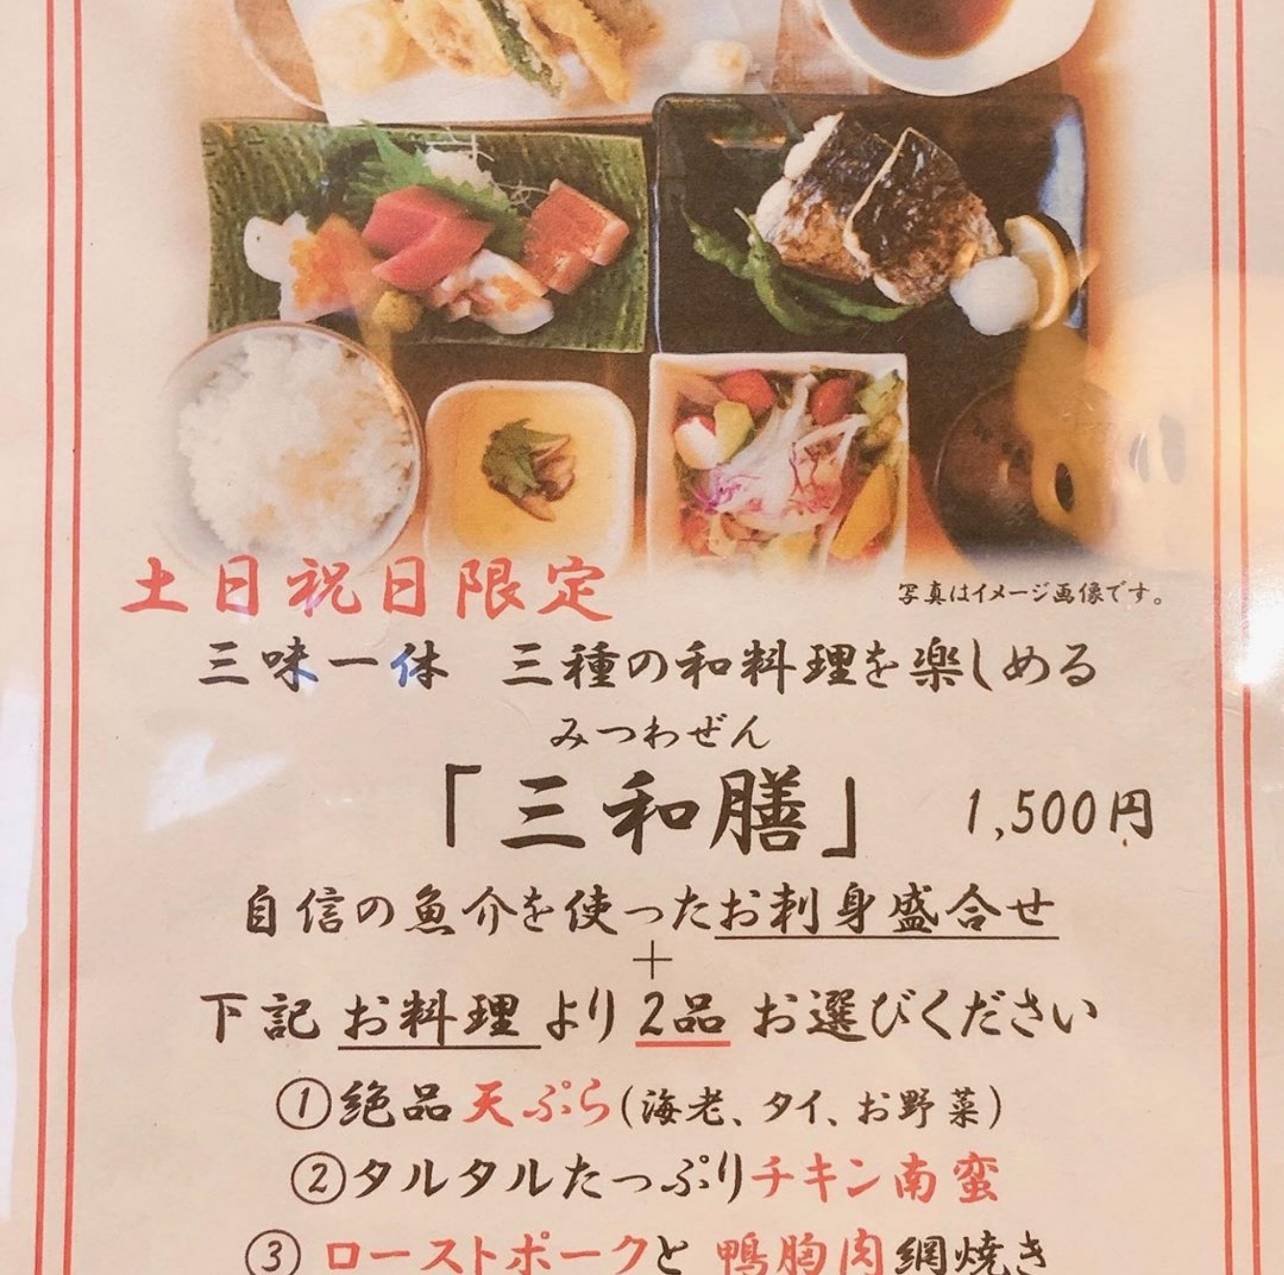 土日祝日限定
写真はイメージ画像です。
三味一体 三種の和料理を楽しめる
みつわぜん
「三和膳」 1,500円
自信の魚介を使ったお刺身盛合せ
+
下記 お料理 より 2品 お選びください
①絶品天ぷら(海老、タイ、お野菜)
②タルタルたっぷりチキン南蛮
③ ローストポークと 鴨胸肉網焼き